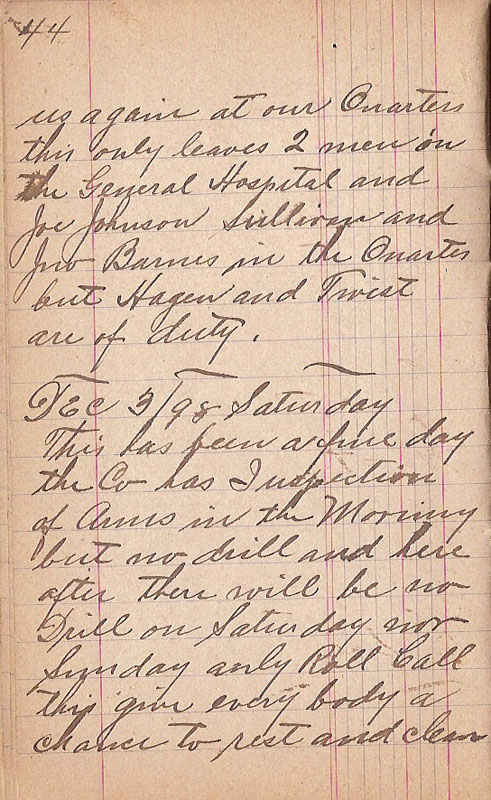 44
us again at our Quarters
this only leaves 2 men in
the General Hospital and
Joe Johnson Sullivan and
Jno Barnes in the Quartes
but Hagen and Twist
are of duty.
DEC 3/98 Saturday
This has been a fine day
the Co has Inspection
of Arms in the Morning
but no drill and here
after there will be no
Drill on Saturday nor
Sunday only Roll Call
this give every body a
chance to rest and clean